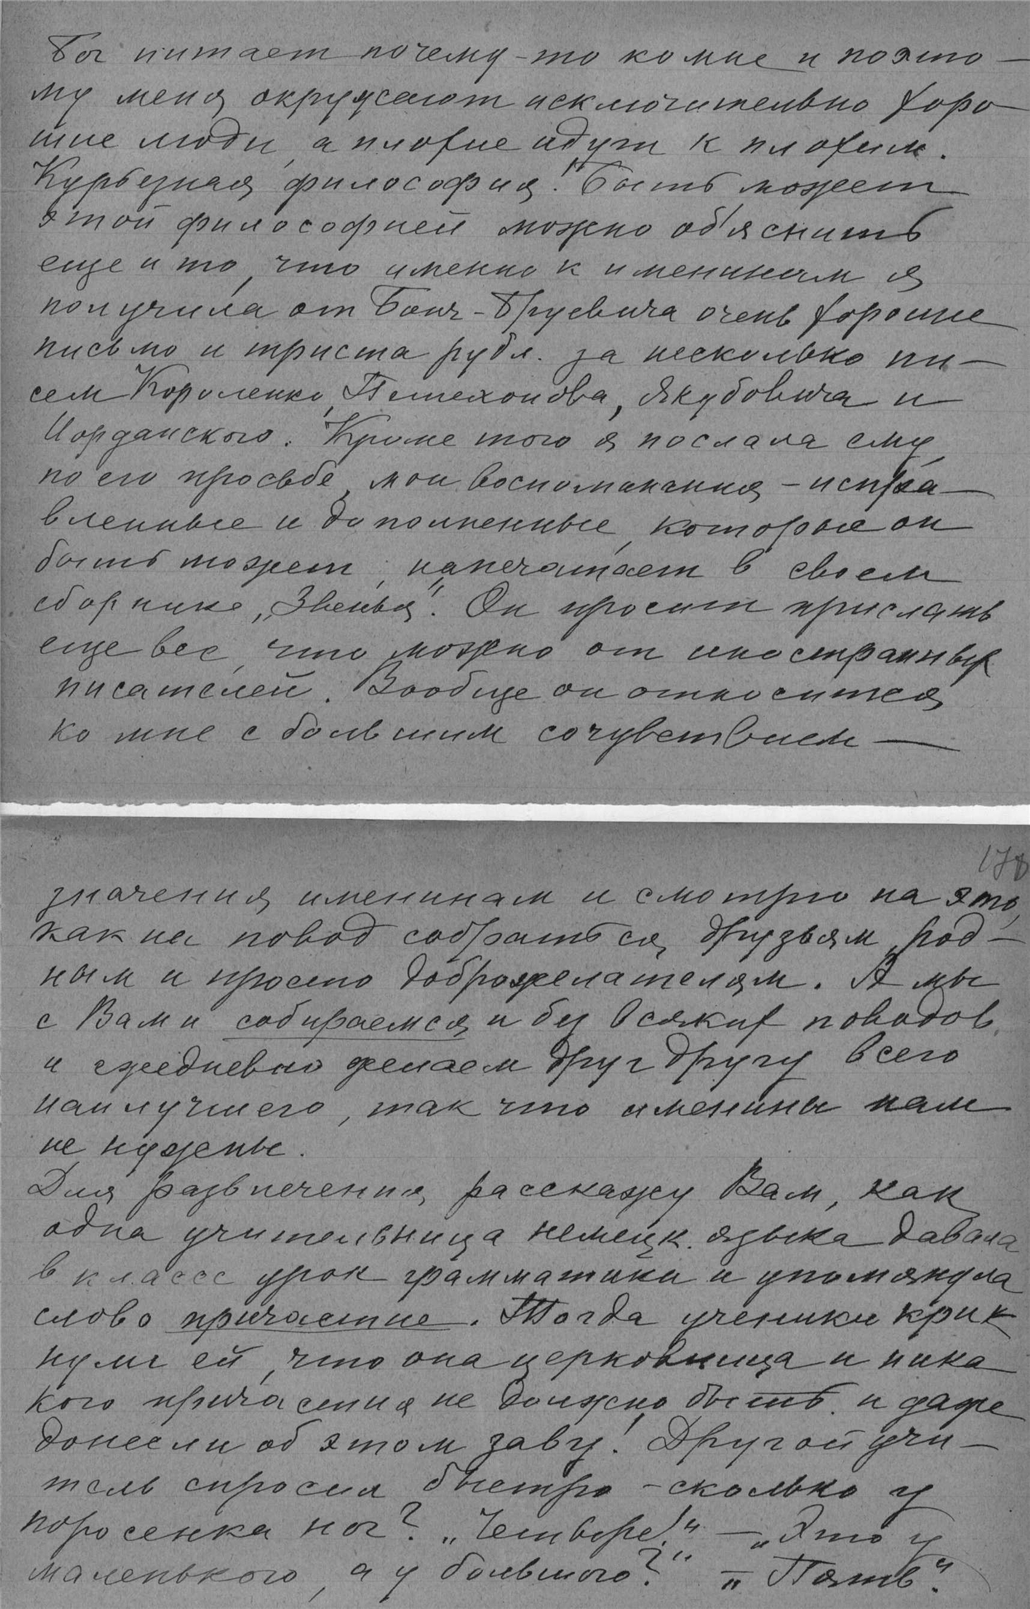 Бог питает почему-то ко мне и поэто-
му меня окружают исключительно хоро-
шие люди, а плохие идут к плохим.
Курьезная философия!" Быть может
этой философией можно об'яснить
еще и то, что именно к именинам я
получила от Бонч-Бруевича очень хорошее
письмо и триста рубл. за несколько пи-
сем Короленко, Пешехонова, Якубовича и
Иорданского. Кроме того я послала ему,
по его просьбе, мои воспоминания - испра-
вленные и дополненные, которые он
быть может, напечатает в своем
сборнике „Звенья". Он просит прислать
еще все, что можно от иностранных
писателей. Вообще он относится
ко мне с большим сочувствием —
178
значения именинам и смотрю на это,
как на повод собраться друзьям, род-
ным и просто доброжелателям. А мы
с Вами собираемся и без всяких поводов
и ежедневно желаем друг другу всего
наилучшего, так что именины нам
не нужны.
Для развлечения расскажу Вам, как
одна учительница немецк. языка давала
в классе урок грамматики и упомянула
слово причастие. Тогда ученики крик
нули ей, что она церковница и ника
кого причастия не должно быть и даже
донесли об этом заву! Другой учи-
тель спросил быстро - сколько у
поросенка ног? „Четыре!" — „Это у
маленького, а у большого?" — „Пять".